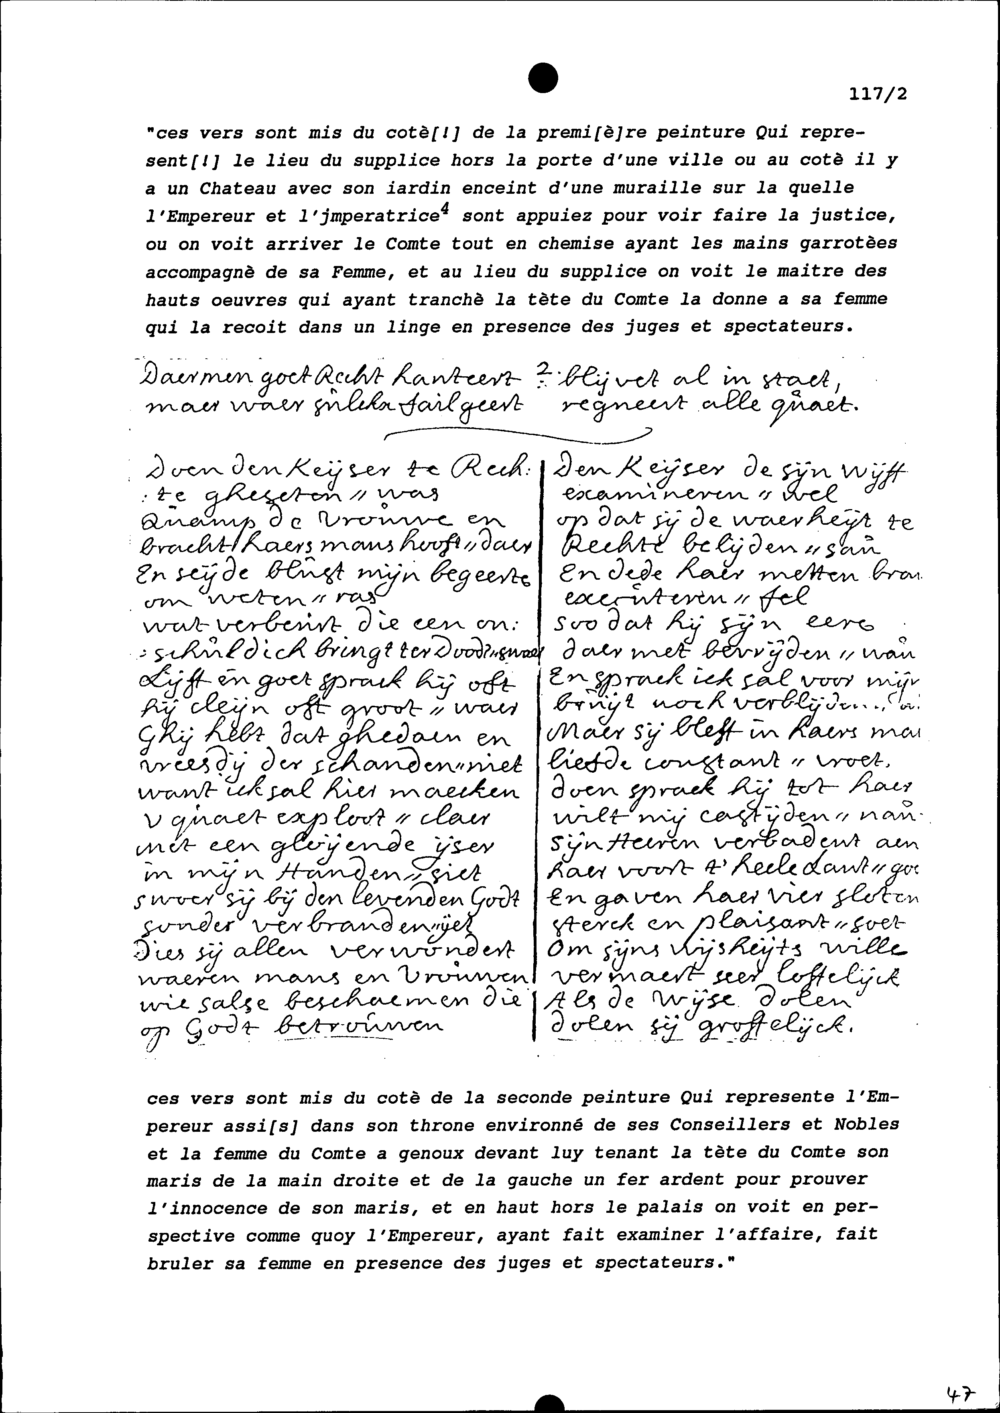 117/2
"ces vers sont mis du cotè[!] de la premi[è]re peinture Qui repre-
sent[!] le lieu du supplice hors la porte d'une ville ou au cotè il y
a un Chateau avec son iardin enceint d'une muraille sur la quelle
l'Empereur et l'jmperatrice⁴ sont appuiez pour voir faire la justice,
ou on voit arriver le Comte tout en chemise ayant les mains garrotèes
accompagnè de sa Femme, et au lieu du supplice on voit le maitre des
hauts oeuvres qui ayant tranchè la tète du Comte la donne a sa femme
qui la recoit dans un linge en presence des juges et spectateurs.
Daermen goet Recht hanteert ? blijvet al in staet,
maer waer sulckx failgeert regneert alle quaet.
Doen den Keijser te Rech:
:te ghezeten " was
Quamp de Vrouwe en
bracht haers mans hooft " daer
En seijde blust mijn begeerte
om weten " ras
wat verbeurt die een on:
:schuldich bringt ter Doodt " swaer
Lijff en goet sprack hij oft
hij cleijn oft groot " waer
Ghij hebt dat ghedaen en
vreesdij der schanden " niet
want ick sal hier maecken
v quaet exploot " claer
met een gloijende ijser
in mijn Handen " siet
swoer sij bij den levenden Godt
sonder verbranden " ijet
Dies sij allen verwondert
waeren mans en Vrouwen
wie salse beschaemen die
op Godt betrouwen
Den Keijser de sijn wijff
examineren " wel
op dat sij de waerheijt te
Rechte belijden " san
En dede haer metten bran
executeren " fel
soo dat hij sijn eere
daer met bevrijden " wan
En sprack ick sal voor mijn
bruijt noch verblijden
Maer sij bleff in haers man
liefde constant " vroet,
doen sprack hij tot haer
wilt mij castijden " nan
sijn Heeren verbadent aen
haer voort t' heele Lant " goe
En gaven haer vier sloten
sterck en plaisant " soet
Om sijns wijsheijts wille
vermaert seer loffelijck
Als de wijse dolen
dolen sij groffelijck.
ces vers sont mis du cotè de la seconde peinture Qui represente l'Em-
pereur assi[s] dans son throne environné de ses Conseillers et Nobles
et la femme du Comte a genoux devant luy tenant la tète du Comte son
maris de la main droite et de la gauche un fer ardent pour prouver
l'innocence de son maris, et en haut hors le palais on voit en per-
spective comme quoy l'Empereur, ayant fait examiner l'affaire, fait
bruler sa femme en presence des juges et spectateurs."
47